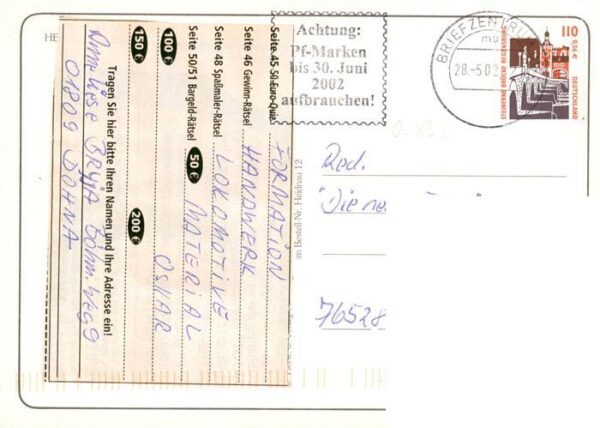 HE
Achtung:
Pf-Marken
bis 30. Juni
2002
aufbrauchen!
BRIEFZENTRUM
28.-5.02
110
0,56 €
DEUTSCHLAND
Red.
76528
zu Bestell-Nr. 12
Seite 45 50-Euro-Quiz
FORMATION
Seite 46 Gewinn-Rätsel
HANDWERK
Seite 48 Spaßmaler-Rätsel
LOKOMOTIVE
Seite 50/51 Bargeld-Rätsel 50 €
MATERIAL
100 €
OSKAR
150 € 200 €
Tragen Sie hier bitte Ihren Namen und Ihre Adresse ein!
01809 DOHNA